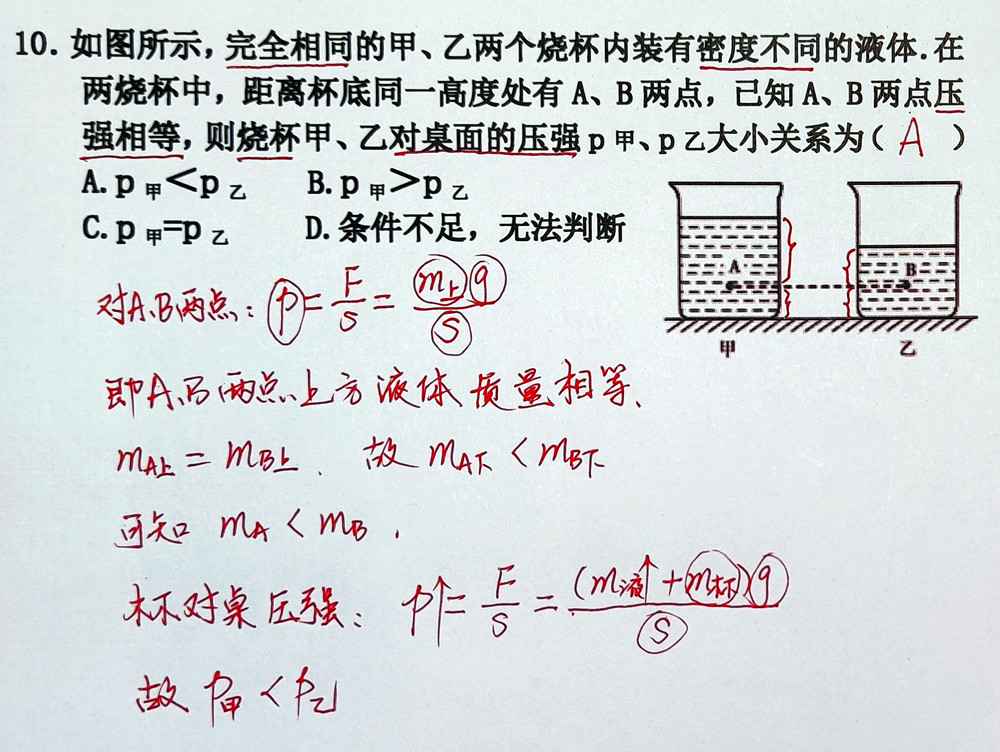 10. 如图所示，完全相同的甲、乙两个烧杯内装有密度不同的液体.在
两烧杯中，距离杯底同一高度处有 A、B 两点，已知 A、B 两点压
强相等，则烧杯甲、乙对桌面的压强 p 甲、p 乙大小关系为（ A ）
A. p 甲＜p 乙 B. p 甲＞p 乙
C. p 甲=p 乙 D. 条件不足，无法判断
A B
甲 乙
对A、B两点：p = F/S = m上g/S
即A、B两点上方液体质量相等、
mA上 = mB上 . 故 mA下 < mB下
可知 mA < mB .
杯对桌压强：p↑= F/S = (m液↑+m杯)g/S
故 p甲 < p乙